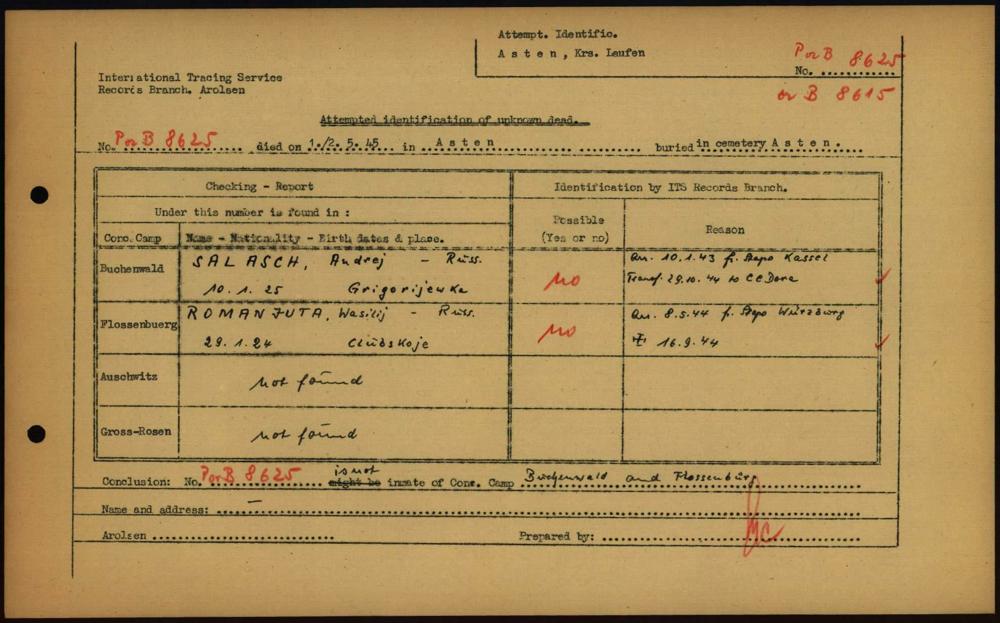 Attempt. Identific.
A s t e n , Krs. Laufen
P or B 8625
No. ............
or B 8615
International Tracing Service
Records Branch. Arolsen
Attempted identification of unknown dead.
No. P or B 8625 died on 1./2. 5. 45 in A s t e n buried in cemetery A s t e n .
Checking - Report
Identification by ITS Records Branch.
Under this number is found in :
Possible
(Yes or no)
Reason
Conc. Camp
Name - Nationality - Birth dates & place.
Buchenwald
SALASCH, Andrej - Russ.
10. 1. 25 Grigorijewka
no
Arr. 10.1.43 f. Stapo Kassel
Transf. 29.10.44 to CC Dora
Flossenbuerg
ROMANJUTA, Wasilij - Russ.
29. 1. 24
no
Arr. 8.5.44 f. Stapo Würzburg
16.9.44
Auschwitz
not found
Gross-Rosen
not found
Conclusion: No. P or B 8625 is not might be inmate of Conc. Camp Buchenwald and Flossenbürg
Name and address: —
Arolsen
Prepared by: